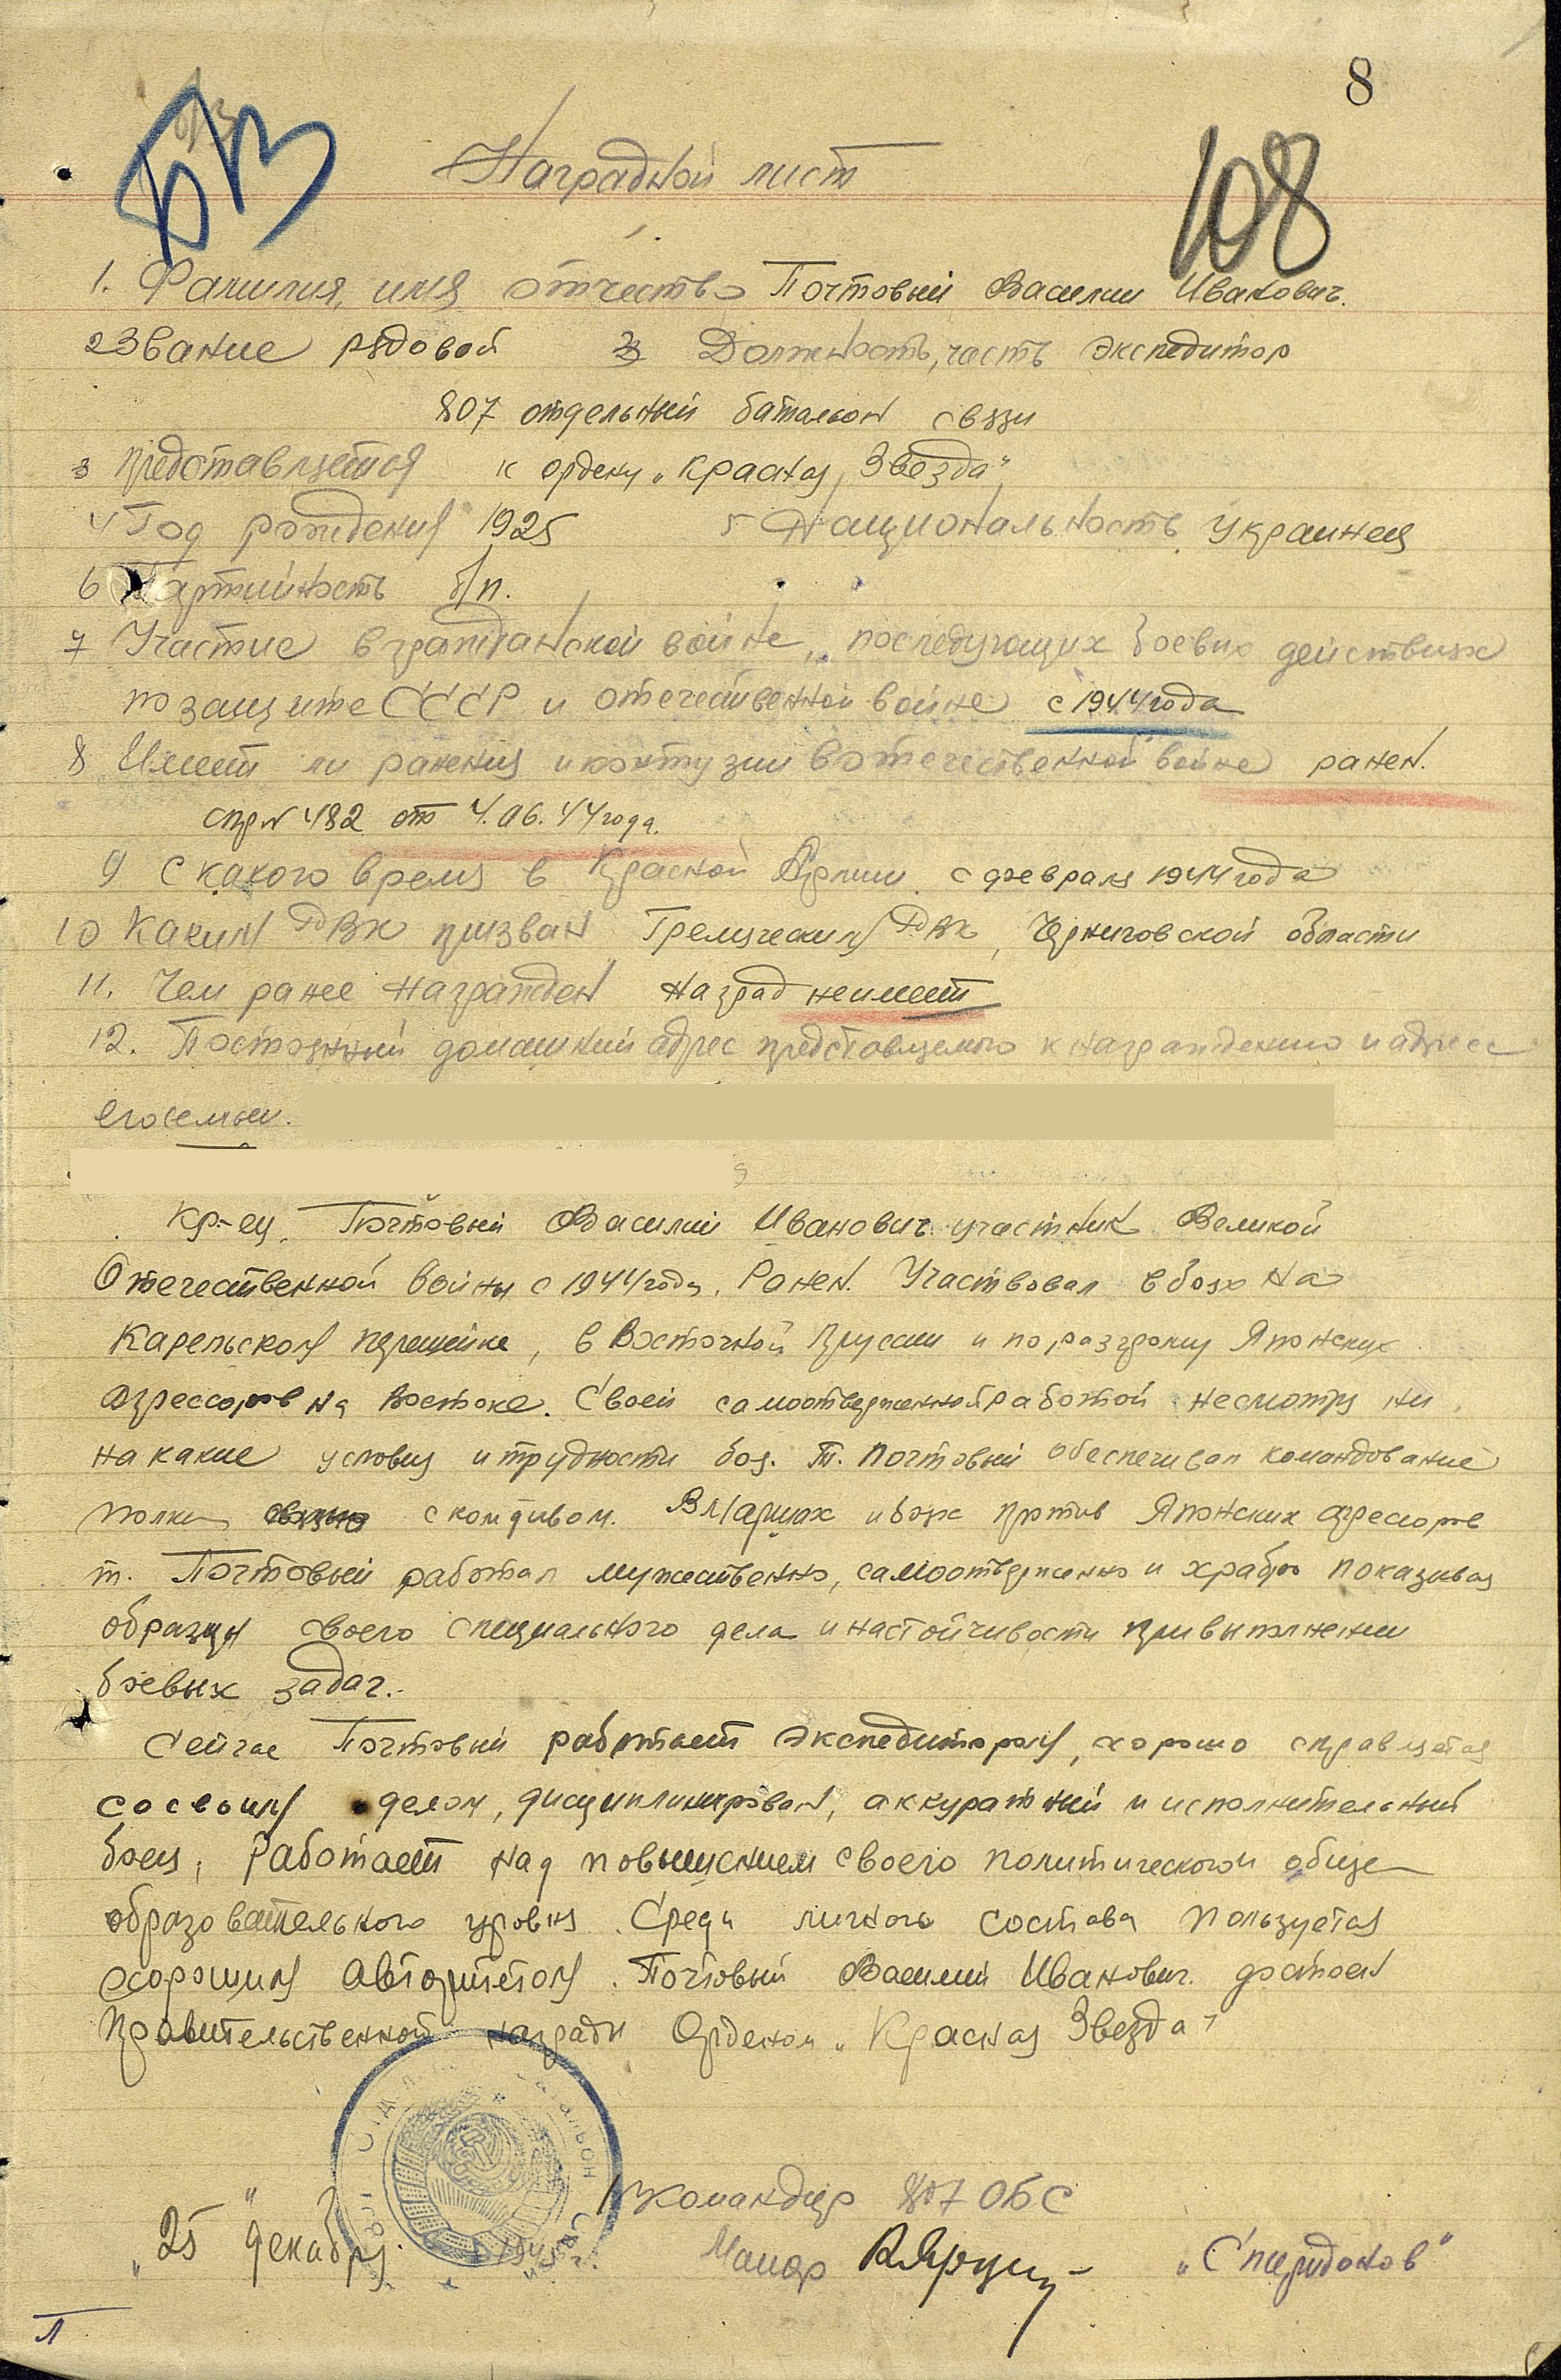 8
БЗ
108
Наградной лист
1. Фамилия, имя отчество Почтовый Василий Иванович.
2 Звание рядовой 3 Должность, часть экспедитор
807 отдельный батальон связи
3 представляется к ордену „Красная Звезда"
4 Год рождения 1925 5 Национальность Украинец
6 Партийность б/п.
7 Участие в гражданской войне, последующих боевых действиях
по защите СССР и отечественной войне с 1944 года
8 Имеет ли ранения и контузии в отечественной войне ранен.
спр N 482 от 4. 06. 44 года.
9 С какого время в Красной Армии с февраля 1944 года
10 Каким РВК призван Гремяческим РВК, Черниговской области
11. Чем ранее награжден наград неимеет
12. Постоянный домашний адрес представляемого к награждению и адрес
его семьи.
Кр-ец. Почтовый Василий Иванович участник Великой
Отечественной войны с 1944 года. Ранен. Участвовал в боях на
Карельском перешейке, в Восточной Пруссии и по разгрому Японских
агрессоров на Востоке. Своей самоотверженной работой несмотря ни
на какие условия и трудности боя. т. Почтовый обеспечивал командование
полка с комдивом. В маршах и боях против Японских агрессоров
т. Почтовый работал мужественно, самоотверженно и храбро показывая
образцы своего специального дела и настойчивости при выполнении
боевых задач.
Сейчас Почтовый работает экспедитором, хорошо справляется
со своим делом, дисциплинирован, аккуратный и исполнительный
боец, Работает над повышением своего политического и обще
образовательного уровня. Среди личного состава пользуется
хорошим авторитетом. Почтовый Василий Иванович достоен
Правительственной награды Орденом „Красная Звезда"
Командир 807 ОБС
„25" декабря 1945 Майор „Спиридонов"
Л